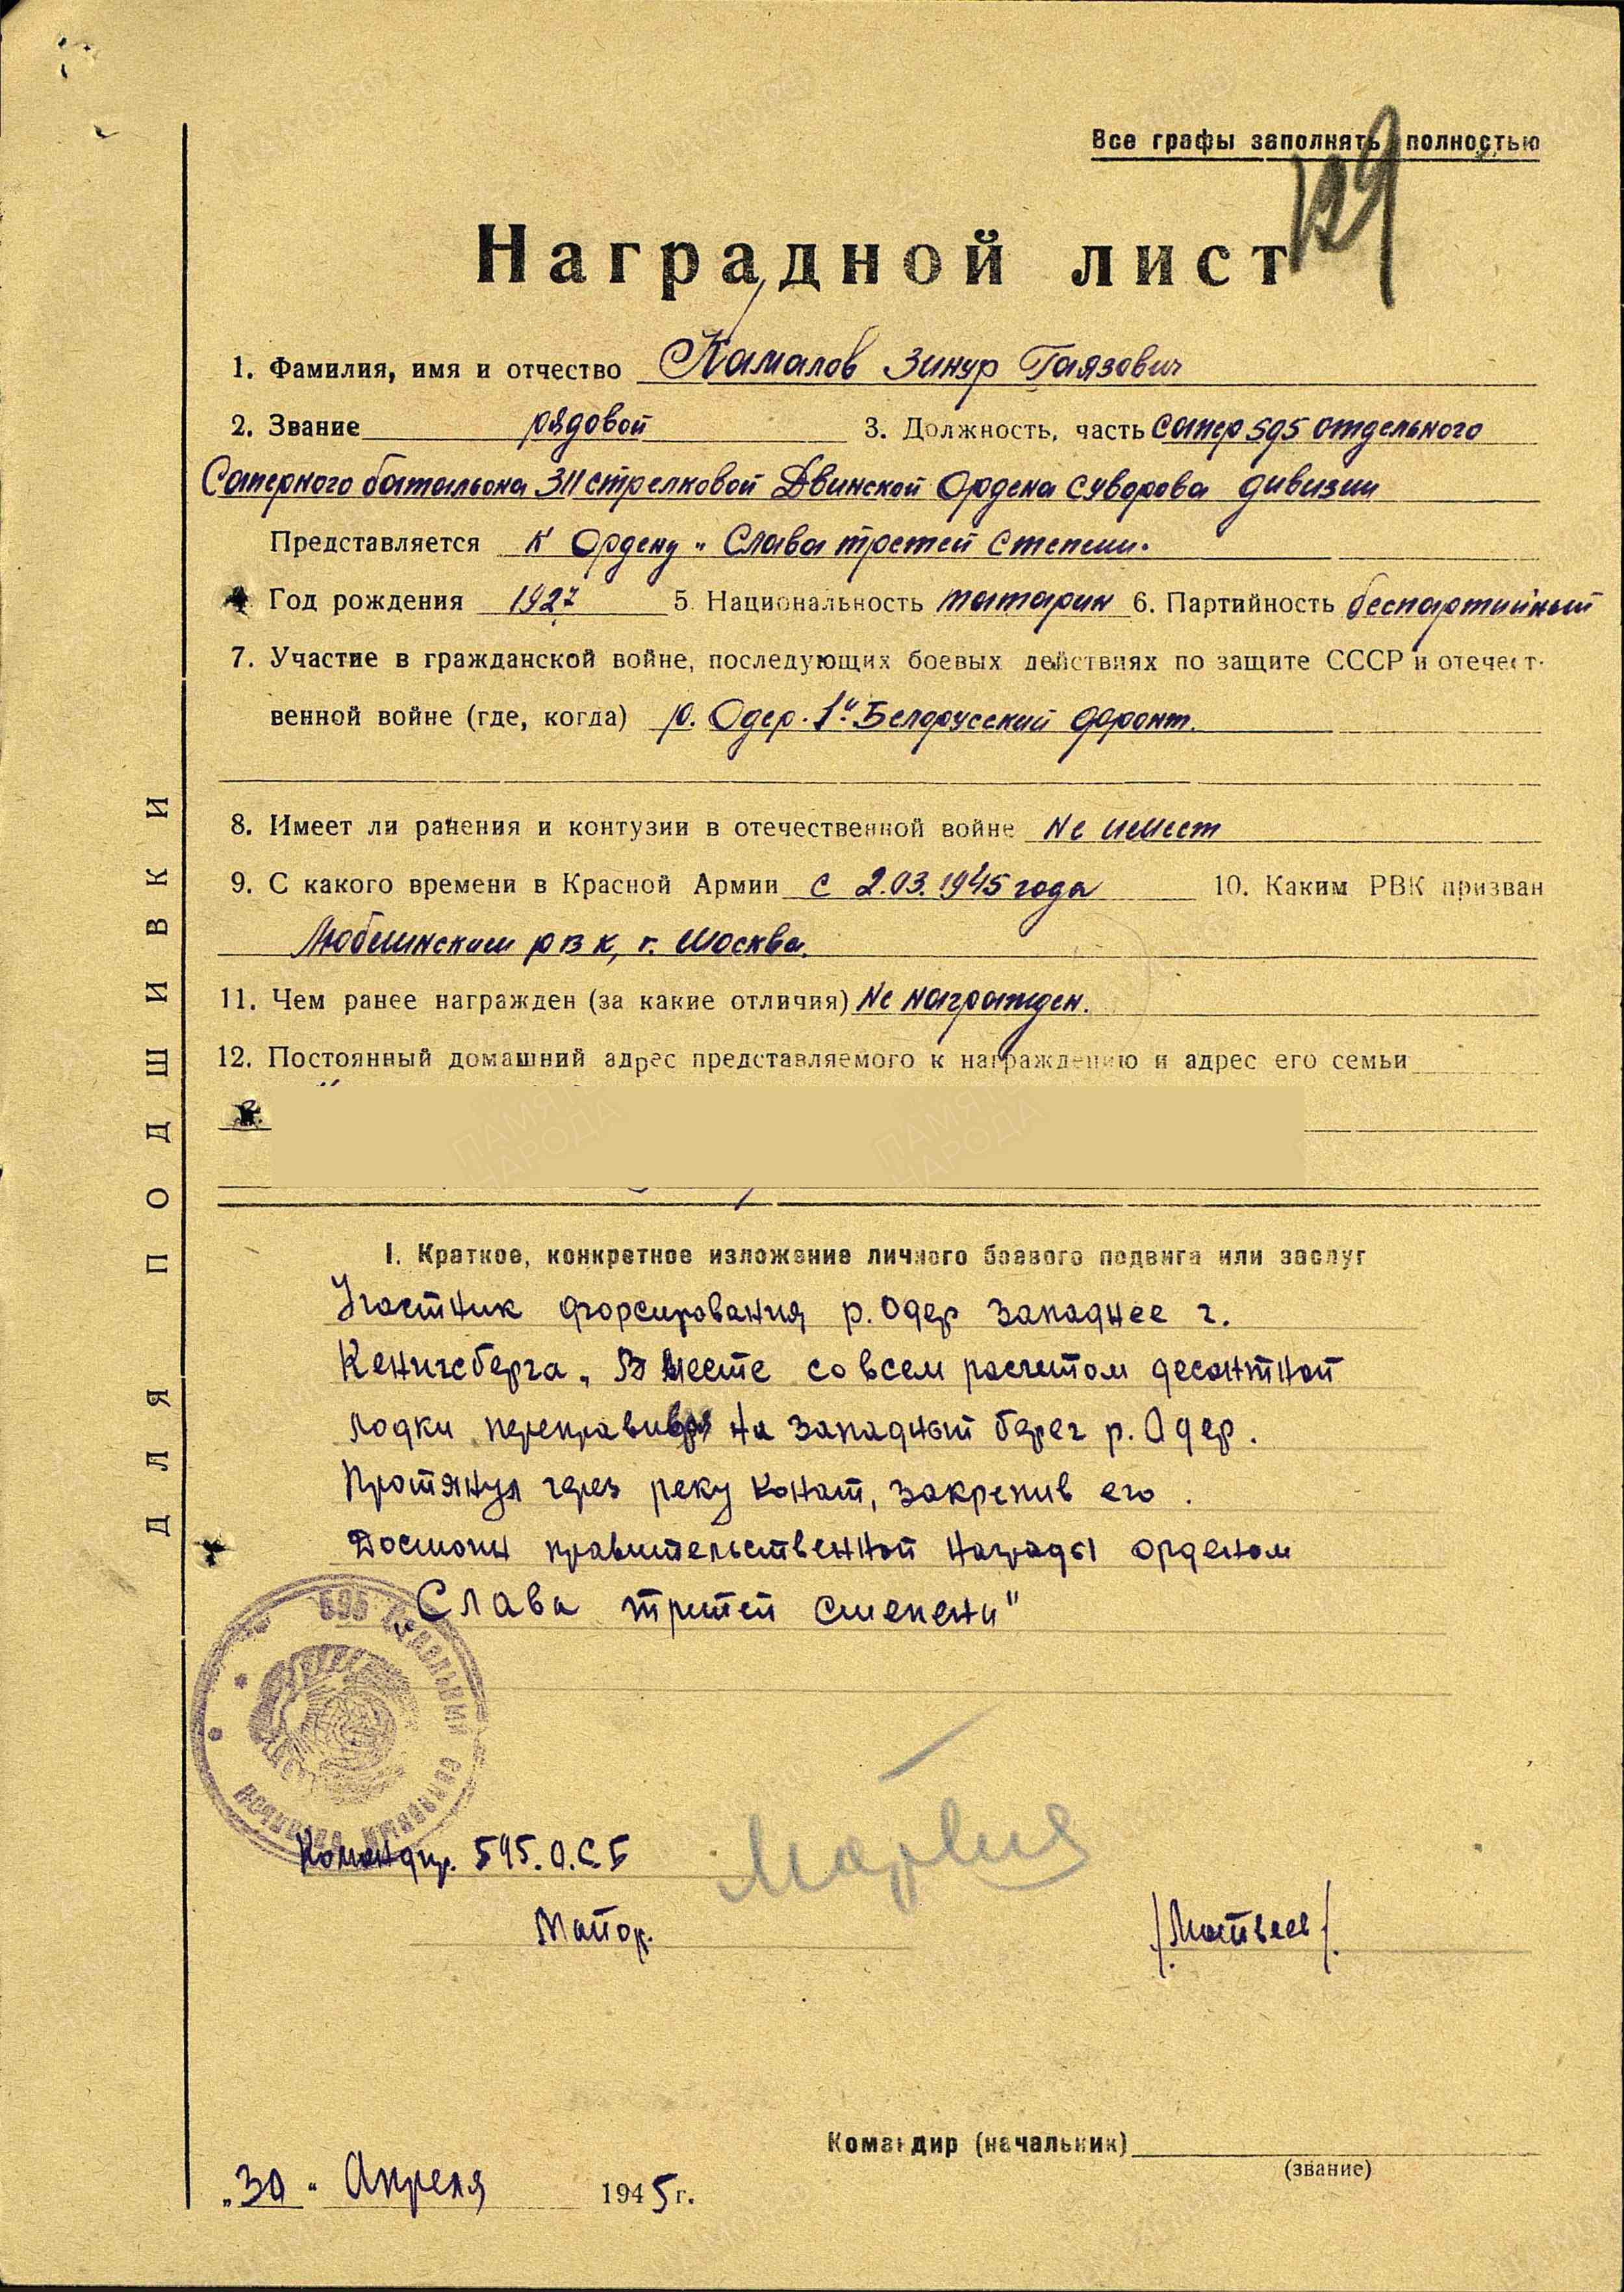 Все графы заполнять полностью
129
Наградной лист
1. Фамилия, имя и отчество Камалов Зинур Гаязович
2. Звание рядовой 3. Должность, часть сапер 595 отдельного
Саперного батальона 311 стрелковой Двинской Ордена Суворова дивизии
Представляется к Ордену „Слава третей степени.
4. Год рождения 1927 5. Национальность татарин 6. Партийность беспартийный
7. Участие в гражданской войне, последующих боевых действиях по защите СССР и отечест-
венной войне (где, когда) р. Одер. 1й Белорусский фронт.
8. Имеет ли ранения и контузии в отечественной войне Не имеет
9. С какого времени в Красной Армии с 2.03.1945 года 10. Каким РВК призван
Люблинским рвк, г. Москва.
11. Чем ранее награжден (за какие отличия) Не награжден.
12. Постоянный домашний адрес представляемого к награждению и адрес его семьи
ПАМЯТЬ НАРОДА ПАМЯТЬ НАРОДА
I. Краткое, конкретное изложение личного боевого подвига или заслуг
Участник форсирования р. Одер западнее г.
Кенигсберга. Вместе со всем расчетом десантной
лодки переправился на западный берег р. Одер.
Протянул через реку канат, закрепив его.
Достоин правительственной награды орденом
„Слава третей степени"
595 Отдельный
Командир. 595. О.С.Б
Майор.
/Матвеев/.
Командир (начальник)
(звание)
„30" Апреля 1945 г.
ДЛЯ ПОДШИВКИ